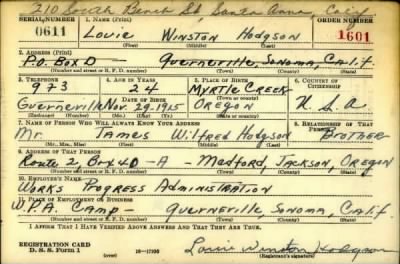 210 South Beach St, Santa Anna, Calif.
SERIAL NUMBER 1. NAME (Print) ORDER NUMBER
0611 Louie Winston Hodgson 1601
(First) (Middle) (Last)
2. ADDRESS (Print)
P.O. Box D - Guerneville, Sonoma, Calif.
(Number and street or R. F. D. number) (Town) (County) (State)
3. TELEPHONE 4. AGE IN YEARS 5. PLACE OF BIRTH 6. COUNTRY OF CITIZENSHIP
973 24 Myrtle Creek
DATE OF BIRTH (Town or county)
Guerneville Nov. 29, 1915 Oregon U.S.A.
(Exchange) (Number) (Mo.) (Day) (Yr.) (State or country)
7. NAME OF PERSON WHO WILL ALWAYS KNOW YOUR ADDRESS 8. RELATIONSHIP OF THAT PERSON
Mr. James Wilfred Hodgson Brother
(Mr., Mrs., Miss) (First) (Middle) (Last)
9. ADDRESS OF THAT PERSON
Route 2, Box 4D-A - Medford, Jackson, Oregon
(Number and street or R. F. D. number) (Town) (County) (State)
10. EMPLOYER'S NAME
Works Progress Administration
11. PLACE OF EMPLOYMENT OR BUSINESS
W.P.A. Camp - Guerneville, Sonoma, Calif.
(Number and street or R. F. D. number) (Town) (County) (State)
I AFFIRM THAT I HAVE VERIFIED ABOVE ANSWERS AND THAT THEY ARE TRUE.
REGISTRATION CARD
D. S. S. Form 1 16-17105 Louie Winston Hodgson
(Registrant's signature)